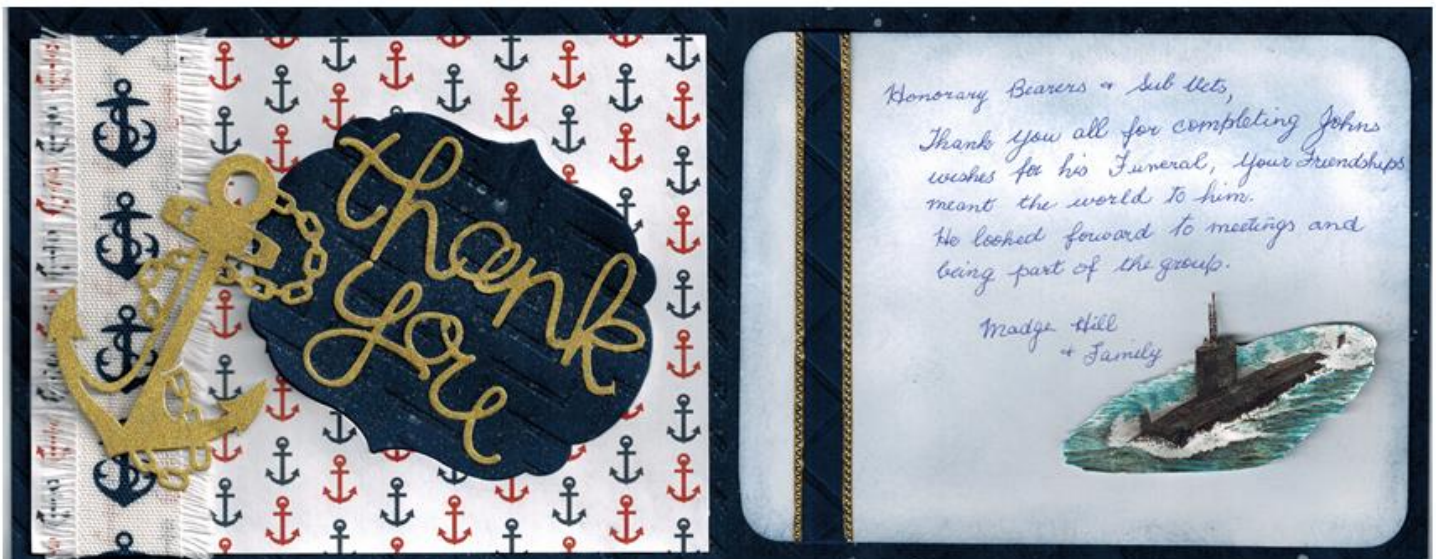 thank
you
Honorary Bearers & Sub Vets,
Thank you all for completing Johns
wishes for his Funeral, your Friendships
meant the world to him.
He looked forward to meetings and
being part of the group.
Madge Hill
& Family